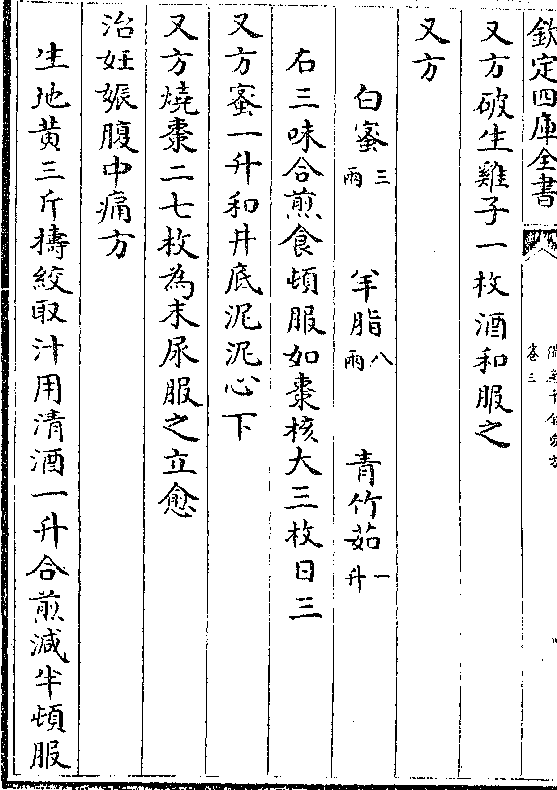 欽定四庫全書
卷三
又方破生雞子一枚酒和服之
又方
白蜜三兩 羊脂八兩 青竹茹一升
右三味合煎食頓服如棗核大三枚日三
又方蜜一升和井底泥泥心下
又方燒棗二七枚為末尿服之立愈
治妊娠腹中痛方
生地黄三斤擣絞取汁用清酒一升合煎減半頓服